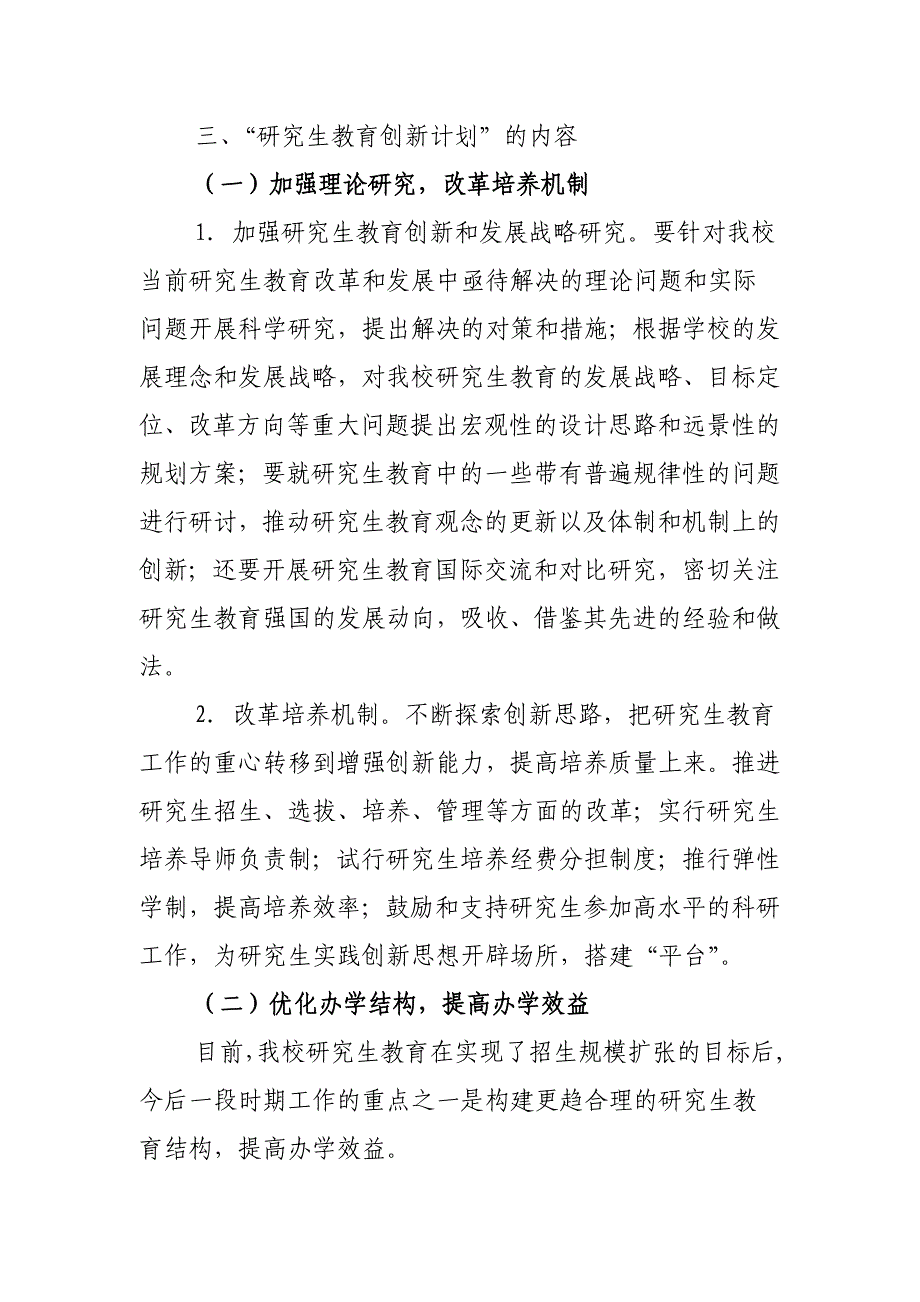 三、“研究生教育创新计划”的内容
（一）加强理论研究，改革培养机制
1．加强研究生教育创新和发展战略研究。要针对我校
当前研究生教育改革和发展中亟待解决的理论问题和实际
问题开展科学研究，提出解决的对策和措施；根据学校的发
展理念和发展战略，对我校研究生教育的发展战略、目标定
位、改革方向等重大问题提出宏观性的设计思路和远景性的
规划方案；要就研究生教育中的一些带有普遍规律性的问题
进行研讨，推动研究生教育观念的更新以及体制和机制上的
创新；还要开展研究生教育国际交流和对比研究，密切关注
研究生教育强国的发展动向，吸收、借鉴其先进的经验和做
法。
2．改革培养机制。不断探索创新思路，把研究生教育
工作的重心转移到增强创新能力，提高培养质量上来。推进
研究生招生、选拔、培养、管理等方面的改革；实行研究生
培养导师负责制；试行研究生培养经费分担制度；推行弹性
学制，提高培养效率；鼓励和支持研究生参加高水平的科研
工作，为研究生实践创新思想开辟场所，搭建“平台”。
（二）优化办学结构，提高办学效益
目前，我校研究生教育在实现了招生规模扩张的目标后，
今后一段时期工作的重点之一是构建更趋合理的研究生教
育结构，提高办学效益。